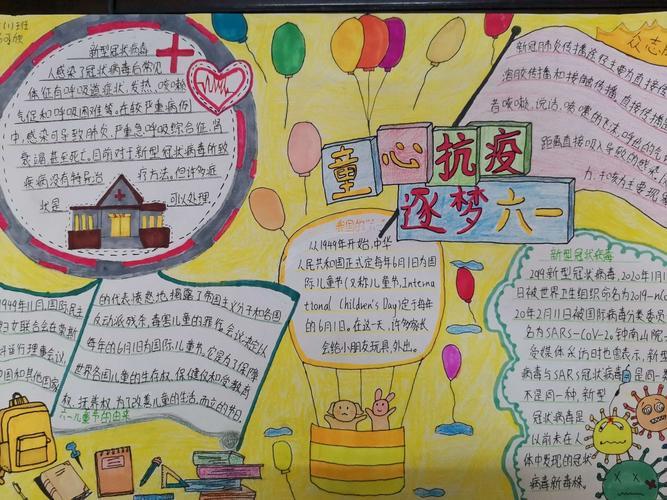 新型冠状病毒
人感染了冠状病毒后常见
体征有呼吸道症状、发热、咳嗽、
气促和呼吸困难等,在较严重病例
中,感染可导致肺炎、严重急性呼吸综合征、肾
衰竭、甚至死亡。目前对于新型冠状病毒所致
疾病没有特异治
疗方法。但许多症
状是
可以处理
众志
新冠肺炎传播途径主要为直接传
溶胶传播和接触传播。直接传播
者喷嚏、咳嗽、说话
距离直接吸入导致的感染
童心抗疫
逐梦六一
从1949年开始,中华
人民共和国正式定每年6月1日为国
际儿童节(又称儿童节,Interna
tional Children's Day)定于每年
的6月1日。在这一天,许多家长
会给小朋友玩具,外出。
1949年11月,国际民主
妇女联合会在莫斯
科举行理事会议,
中国和其他国家
的代表愤怒地揭露了帝国主义分子和各国
反动派残杀、毒害儿童的罪行。会议决定以
每年的6月1日为国际儿童节。它是为了保障
世界各国儿童的生存权、保健权和受教育
权、抚养权、为了改善儿童的生活,而立的节日
六一儿童节的由来
新型冠状病毒
2019新型冠状病毒,2020年1月1
日被世界卫生组织命名为2019-n
20年2月11日被国际病毒分类委员
名为SARS-CoV-2。钟南山院
受媒体采访时也曾表示,新
病毒与SARS冠状病毒是同一
不是同一种,新型
冠状病毒是
以前未在人
体中发现的冠状
病毒新毒株。